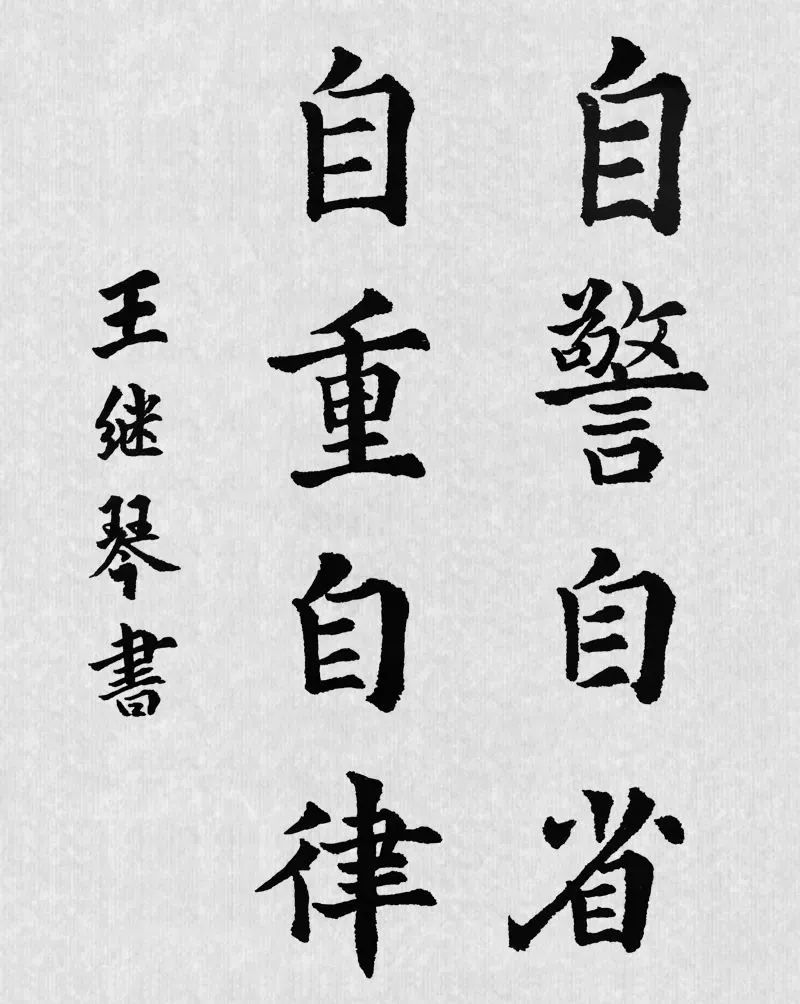 自警自省
自重自律
王继琴書